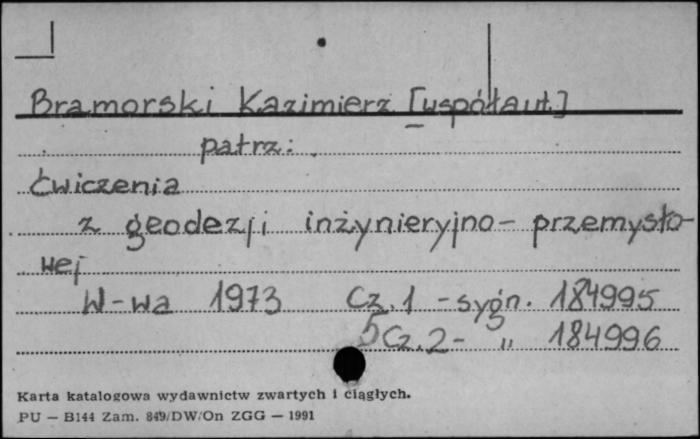 Bramorski Kazimierz [współaut.]
patrz:
Ćwiczenia
z geodezji inżynieryjno-przemysło-
wej
W-wa 1973 Cz. 1 - sygn. 184995
5 Cz. 2 - " 184996
Karta katalogowa wydawnictw zwartych i ciągłych.
PU — B144 Zam. 849/DW/On ZGG — 1991